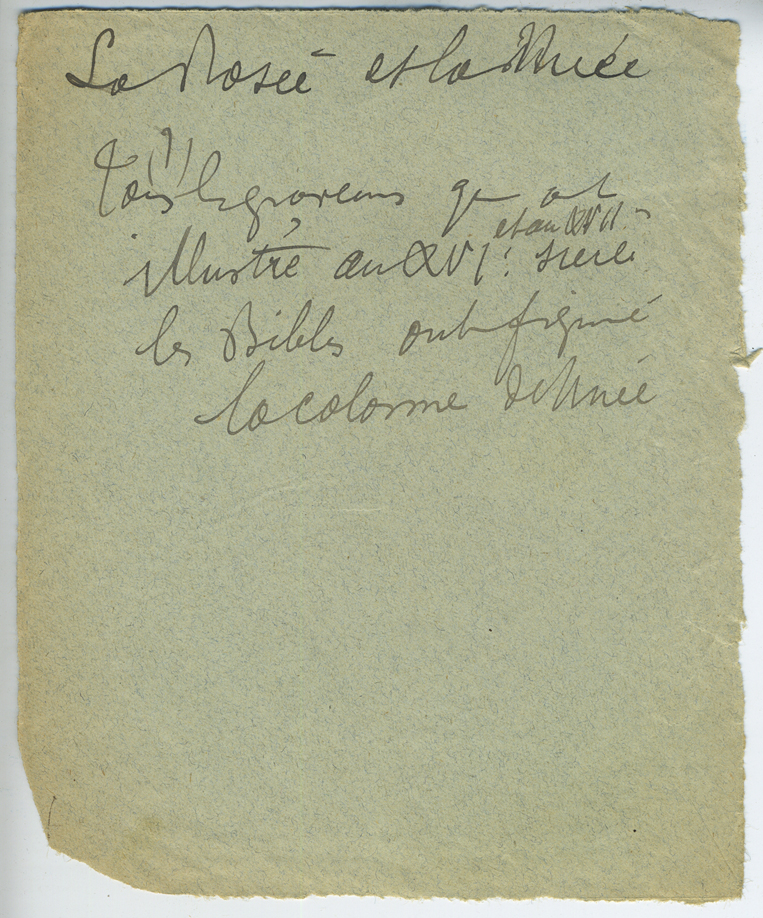 La Rosée et la Nuée
Tous les graveurs qui ont
et au XVII
illustré au XVIe siècle
les Bibles ont figuré
la colonne de Nuée